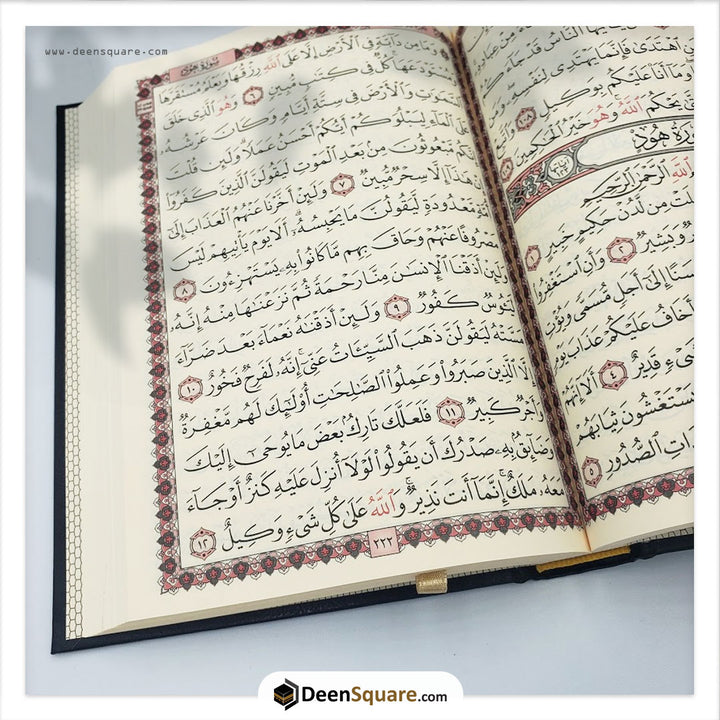 www.deensquare.com
يَٰٓأَيُّهَا ٱلنَّاسُ قَدْ جَآءَ
ٱهْتَدَىٰ فَإِنَّمَا يَهْتَدِى لِنَفْسِهِۦ
وَمَآ أَنَا۠ عَلَيْكُم بِوَكِيلٍ ١٠٨
يَحْكُمَ ٱللَّهُ وَهُوَ خَيْرُ ٱلْحَٰكِمِينَ
سُورَةُ هُودٍ
ٱللَّهِ ٱلرَّحْمَٰنِ ٱلرَّحِيمِ
مِن لَّدُنْ حَكِيمٍ خَبِيرٍ ١
وَبَشِيرٌ ٢ وَأَنِ ٱسْتَغْفِرُوا۟
إِلَىٰٓ أَجَلٍ مُّسَمًّى وَيُؤْتِ
أَخَافُ عَلَيْكُمْ عَذَابَ يَوْمٍ
شَىْءٍ قَدِيرٌ ٤ أَلَآ إِنَّهُمْ
يَسْتَغْشُونَ ثِيَابَهُمْ
ٱلصُّدُورِ ٥
سُورَةُ هُودٍ
وَمَا مِن دَآبَّةٍ فِى ٱلْأَرْضِ إِلَّا عَلَى ٱللَّهِ رِزْقُهَا وَيَعْلَمُ مُسْتَقَرَّهَا
وَمُسْتَوْدَعَهَا كُلٌّ فِى كِتَٰبٍ مُّبِينٍ ٦ وَهُوَ ٱلَّذِى خَلَقَ
ٱلسَّمَٰوَٰتِ وَٱلْأَرْضَ فِى سِتَّةِ أَيَّامٍ وَكَانَ عَرْشُهُۥ
عَلَى ٱلْمَآءِ لِيَبْلُوَكُمْ أَيُّكُمْ أَحْسَنُ عَمَلًا وَلَئِن قُلْتَ
إِنَّكُم مَّبْعُوثُونَ مِنۢ بَعْدِ ٱلْمَوْتِ لَيَقُولَنَّ ٱلَّذِينَ كَفَرُوٓا۟
هَٰذَآ إِلَّا سِحْرٌ مُّبِينٌ ٧ وَلَئِنْ أَخَّرْنَا عَنْهُمُ ٱلْعَذَابَ إِلَىٰٓ
أُمَّةٍ مَّعْدُودَةٍ لَّيَقُولُنَّ مَا يَحْبِسُهُۥٓ أَلَا يَوْمَ يَأْتِيهِمْ لَيْسَ
مَصْرُوفًا عَنْهُمْ وَحَاقَ بِهِم مَّا كَانُوا۟ بِهِۦ يَسْتَهْزِءُونَ ٨
وَلَئِنْ أَذَقْنَا ٱلْإِنسَٰنَ مِنَّا رَحْمَةً ثُمَّ نَزَعْنَٰهَا مِنْهُ إِنَّهُۥ
لَيَـُٔوسٌ كَفُورٌ ٩ وَلَئِنْ أَذَقْنَٰهُ نَعْمَآءَ بَعْدَ ضَرَّآءَ
مَسَّتْهُ لَيَقُولَنَّ ذَهَبَ ٱلسَّيِّـَٔاتُ عَنِّىٓ إِنَّهُۥ لَفَرِحٌ فَخُورٌ ١٠
إِلَّا ٱلَّذِينَ صَبَرُوا۟ وَعَمِلُوا۟ ٱلصَّٰلِحَٰتِ أُو۟لَٰٓئِكَ لَهُم مَّغْفِرَةٌ
وَأَجْرٌ كَبِيرٌ ١١ فَلَعَلَّكَ تَارِكٌۢ بَعْضَ مَا يُوحَىٰٓ إِلَيْكَ
وَضَآئِقٌۢ بِهِۦ صَدْرُكَ أَن يَقُولُوا۟ لَوْلَآ أُنزِلَ عَلَيْهِ كَنزٌ أَوْ جَآءَ
مَعَهُۥ مَلَكٌ إِنَّمَآ أَنتَ نَذِيرٌ وَٱللَّهُ عَلَىٰ كُلِّ شَىْءٍ وَكِيلٌ ١٢
٢٢٢
DeenSquare.com